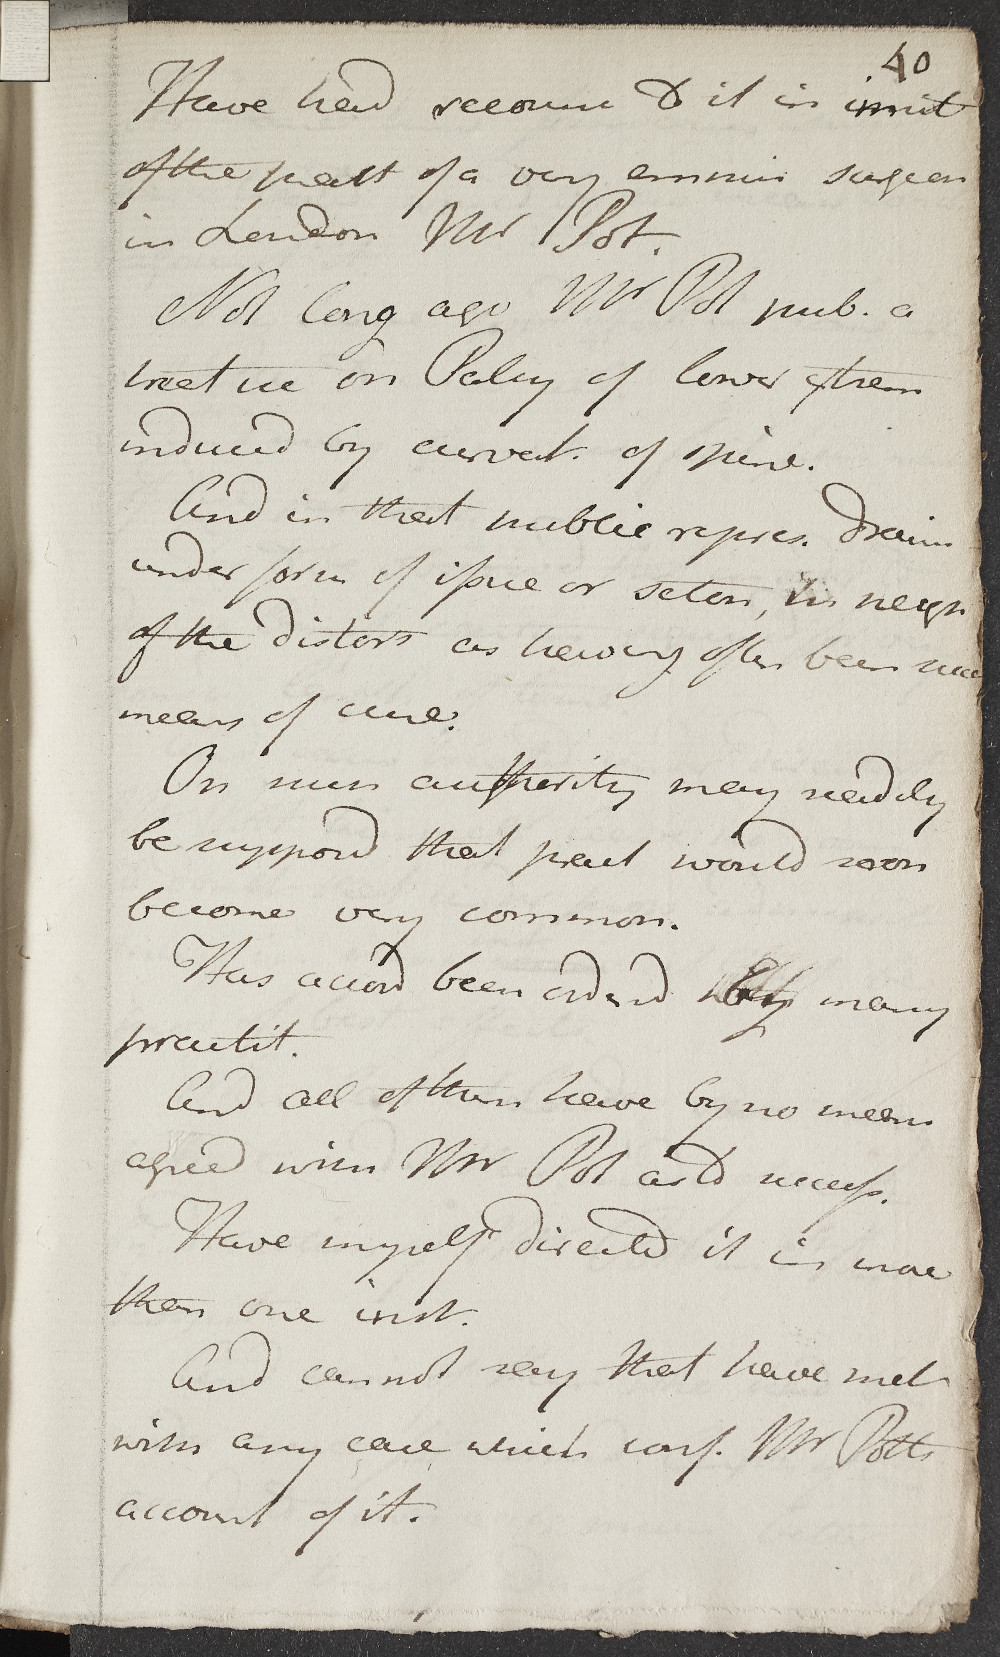 40
Have had recourse to it in imit
of the pract of a very eminen surgeon
in London Mr Pot.
Not long ago Mr Pot pub. a
treatise on Palsy of lower extrem
induced by curvat. of spine.
And in that public repres. drain
under form of issue or seton, in neigh
of the distort as having often been succ
means of cure.
On such authority may readily
be supposd that pract would soon
become very common.
Has accord been ordered by many
practit.
And all of them have by no means
agreed with Mr Pot as to success.
Have myself directed it in more
than one inst.
And cannot say that have met
with any case which conf. Mr Potts
account of it.